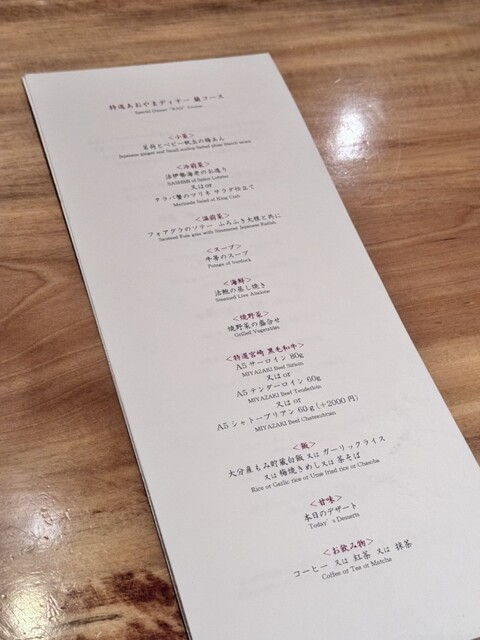 特選あおやまディナー 薇コース
Special Dinner "BARA" Course
<小菜>
茗荷とベビー帆立の梅あん
Japanese ginger and Small scallop Salted plum Starch sauce
<冷前菜>
活伊勢海老のお造り
SASHIMI of Spiny Lobster
又はor
タラバ蟹のマリネ サラダ仕立て
Marinade Salad of King Crab
<温前菜>
フォアグラのソテー ふろふき大根と共に
Sauteed Foie gras with Simmered Japanese Radish
<スープ>
牛蒡のスープ
Potage of burdock
<海鮮>
活鮑の蒸し焼き
Steamed Live Abalone
<焼野菜>
焼野菜の盛合せ
Grilled Vegetables
<特選宮崎 黒毛和牛>
A5 サーロイン 80g
MIYAZAKI Beef Sirloin
又はor
A5 テンダーロイン 60g
MIYAZAKI Beef Tenderloin
又はor
A5 シャトーブリアン 60g (+2000円)
MIYAZAKI Beef Chateaubrian
<飯>
大分産もみ貯蔵白飯 又は ガーリックライス
又は 梅焼きめし又は 茶そば
Rice or Garlic rice or Ume fried rice or Chasoba
<甘味>
本日のデザート
Today's Desserts
<お飲み物>
コーヒー 又は 紅茶 又は 抹茶
Coffee or Tea or Matcha